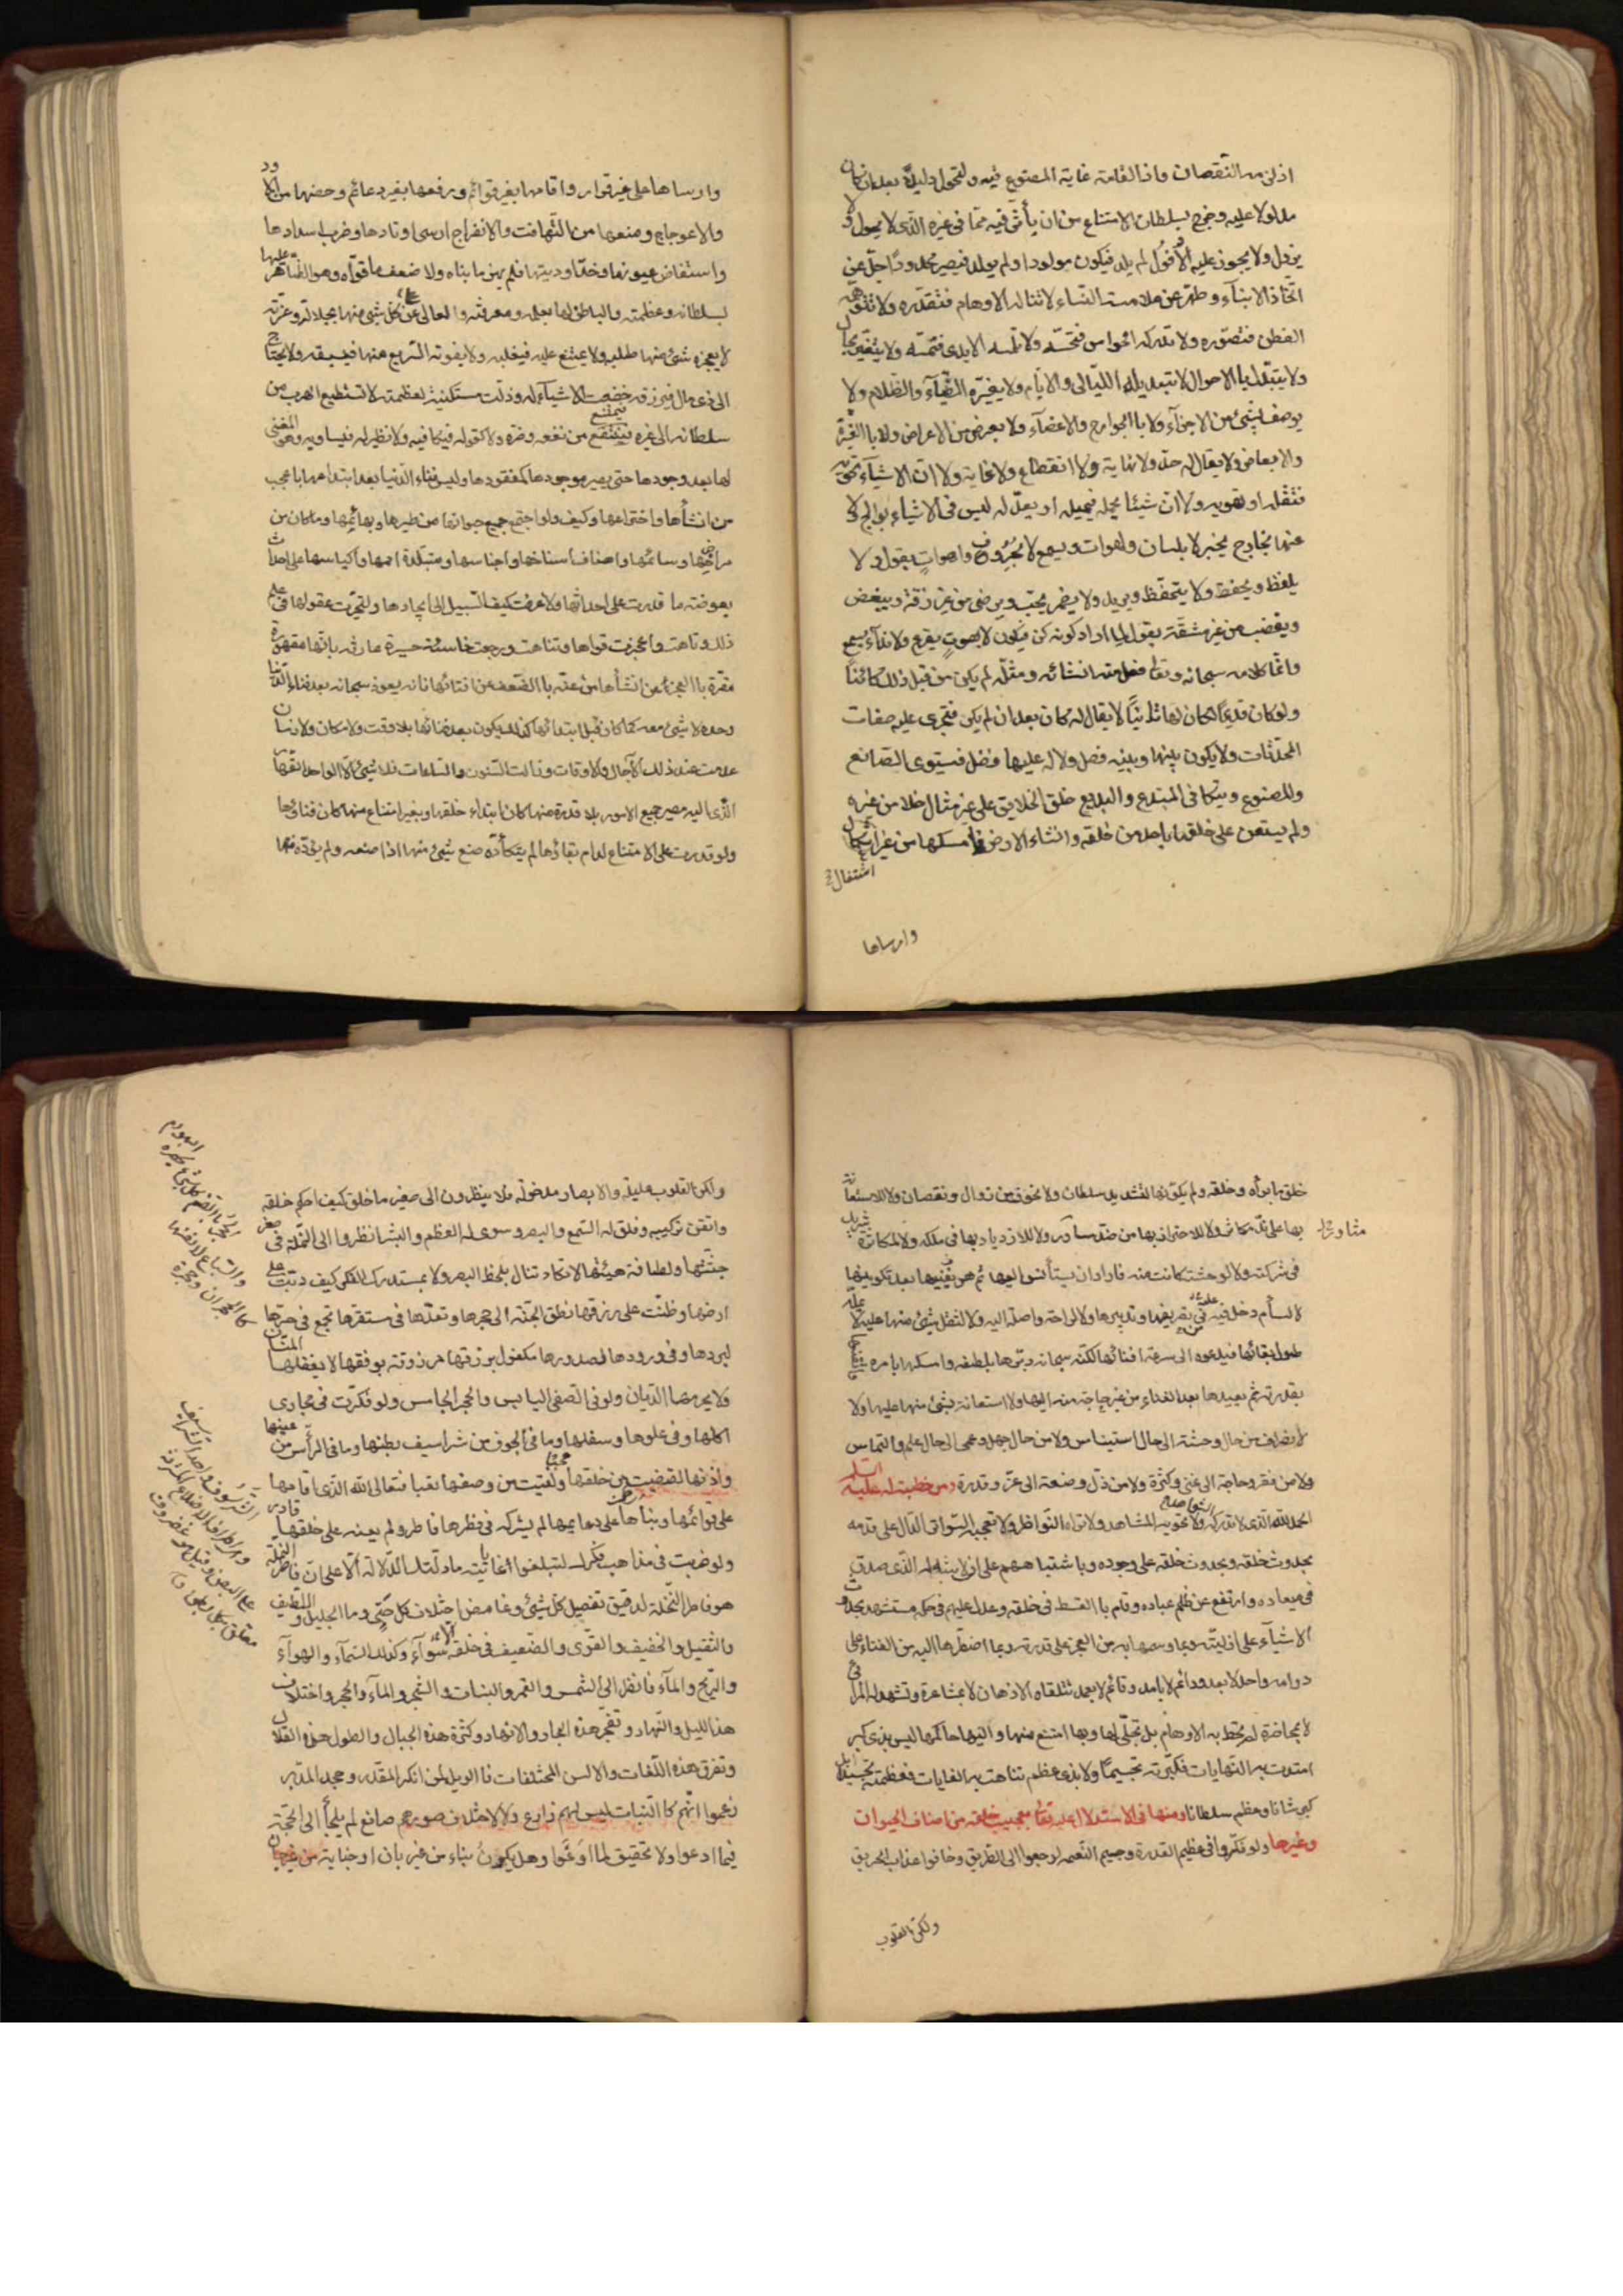 اذ لزمه النقصان واذا لقامت غاية المصنوع فيه ولتحول دليلا بعد ان كان
مدلولا عليه وخرج بسلطان الامتناع من ان يأثر فيه مما في غيره الذي لا يحول ولا
يزول ولا يجوز عليه الافول لم يلد فيكون مولودا ولم يولد فيصير محدودا جل عن
اتخاذ الابناء وطهر عن ملامسة النساء لا تناله الاوهام فتقدره ولا تتوهمه
الفطن فتصوره ولا تدركه الحواس فتحسه ولا تلمسه الايدي فتمسه ولا يتغير بحال
ولا يتبدل با الاحوال لا تبديله الليالي والايام ولا يغيره الضياء والظلام ولا
يوصف بشئ من الاجزاء ولا با الجوارح والاعضاء ولا بعرض من الاعراض ولا با الغيرية
والابعاض ولا يقال له حد ولا نهاية ولا انقطاع ولا غاية ولا ان الاشياء تحويه
فتقله او تهويه ولا ان شيئا يحمله فيميله او يعدله ليس في الاشياء بوالج ولا
عنها بخارج يخبر لا بلسان ولهوات ويسمع لا بخروق واصوات يقول ولا
يلفظ ويحفظ ولا يتحفظ ويريد ولا يضمر يحب ويرضى من غير رقة ويبغض
ويغضب من غير مشقة يقول لما اراد كونه كن فيكون لا بصوت يقرع ولا نداء يسمع
وانما كلامه سبحانه وتعالى فعل منه انشائه ومثله لم يكن من قبل ذلك كائنا
ولو كان قديما لكان الها ثانيا لا يقال له كان بعد ان لم يكن فتجرى عليه صفات
المحدثات ولا يكون بينها وبينه فصل ولا له عليها فضل فيستوى الصانع
والمصنوع ويتكافى المبتدع والبديع خلق الخلايق على غير مثال خلا من غيره
ولم يستعن على خلقها باحد من خلقه وانشاء الارض فامسكها من غير
اشتغال
وارساها
وارساها على غير قرار واقامها بغير قوائم ورفعها بغير دعائم وحصنها من الاود
والاعوجاج ومنعها من التهافت والانفراج ارسى اوتادها وضرب اسدادها
واستفاض عيونها وخد اوديتها فلم يهن ما بناه ولا ضعف ما قواه وهو الظاهر عليها
بسلطانه وعظمته والباطن لها بعلمه ومعرفته والعالى على كل شئ منها بجلاله وعزته
لا يعجزه شئ منها طلبه ولا يمتنع عليه فيغلبه ولا يفوته السريع منها فيسبقه ولا يحتاج
الى ذى مال فيرزقه خضعت الاشياء له وذلت مستكينة لعظمته لا تستطيع الهرب من
سلطانه الى غيره فيمتنع من نفعه وضره ولا كفو له فيكافيه ولا نظير له فيساويه وهو المفنى
لها بعد وجودها حتى يصير موجودها كمفقودها وليس فناء الدنيا بعد ابتدامها با عجب
من انشأها واختراعها وكيف ولو اجتمع جميع حيوانها من طيرها وبهائمها وما كان من
مراحها وسائمها واصناف اسناخها واجناسها ومتبلدة اممها واكياسها على احداث
بعوضة ما قدرت على احداثها ولا عرفت كيف السبيل الى ايجادها ولتحيرت عقولها في علم
ذلك وتاهت واعجزت قواها وتناهت ورجعت خاسئة حسيرة عارفة بانها مقهورة
مقرة با العجز عن انشأها مذعنة با الضعف عن افنائها فانه يعود سبحانه بعد فناء الدنيا
وحده لا شئ معه كما كان قبل ابتدائها كذلك يكون بعد فنائها بلا وقت ولا مكان ولا زمان
عدمت عند ذلك الآجال والاوقات وزالت السنون والساعات فلا شئ الا الواحد القهار
الذى اليه مصير جميع الامور بلا قدرة منها كان ابتداء خلقها وبغير امتناع منها كان فنائها
ولو قدرت على الامتناع لدام بقاؤها لم يتكأده صنع شئ منها اذا صنعه ولم يؤده منها
خلق ما برأه وخلقه ولم يكونها لتشديد سلطان ولا لخوف من زوال ونقصان ولا للاستعانة
بها على ند مكاثر ولا للاحتراز بها من ضد مساور ولا للازدياد بها في ملكه ولا لمكاثرة شريك
مثاور خ
في شركته ولا لوحشة كانت منه فاراد ان يستأنس اليها ثم هو يفنيها بعد تكوينها
لا لسأم دخل عليه في تصريفها وتدبيرها ولا لراحة واصلة اليه ولا لثقل شئ منها عليه لا يمله
طول بقائها فيدعوه الى سرعة افنائها لكنه سبحانه دبرها بلطفه وامسكها بامره
بقدرته ثم يعيدها بعد الفناء من غير حاجة منه اليها ولا استعانة بشئ منها عليها ولا
لانصراف من حال وحشة الى حال استيناس ولا من حال جهل وعمى الى حال علم والتماس
ولا من فقر وحاجة الى غنى وكثرة ولا من ذل وضعة الى عز وقدرة ومن خطبة له عليه السلام
الحمد لله الذى لا تدركه الشواهد ولا تحويه المشاهد ولا تراه النواظر ولا تحجبه السواتر الدال على قدمه
بحدوث خلقه وبحدوث خلقه على وجوده وباشتباههم على ان لا شبه له الذى صدق
في ميعاده وارتفع عن ظلم عباده وقام با القسط في خلقه وعدل عليهم في حكمه مستشهد بحدوث
الاشياء على ازليته وبما وسمها به من العجز على قدرته وبما اضطرها اليه من الفناء على
دوامه واحد لا بعدد ودائم لا بامد وقائم لا بعمد تتلقاه الاذهان لا بمشاعرة وتشهد له المرائى
لا بمحاضرة لم تحط به الاوهام بل تجلى لها وبها امتنع منها واليها حاكمها ليس بذى كبر
امتدت به النهايات فكبرته تجسيما ولا بذى عظم تناهت به الغايات فعظمته تجسيدا بل
كبر شانا وعظم سلطانا ومنها في الاستدلال عليه تعالى بعجيب خلقه من اصناف الحيوان
وغيرها ولو فكروا في عظيم القدرة وجسيم النعمه لرجعوا الى الطريق وخافوا عذاب الحريق
ولكن القلوب
ولكن القلوب عليلة والابصار مدخولة فلا ينظرون الى صغير ما خلق كيف احكم خلقه
واتقن تركيبه وفلق له السمع والبصر وسوى له العظم والبشر انظروا الى النملة في صغر
جثتها ولطافة هيئتها لا تكاد تنال بلحظ البصر ولا بمستدرك الفكر كيف دبت على
ارضها وظنت على رزقها تنقل الحبة الى جحرها وتعدها في مستقرها تجمع في حرها
لبردها وفي ورودها لصدورها مكفول برزقها مرزوقة بوفقها لا يغفلها المنان
ولا يحرمها الديان ولو في الصفى اليابس والحجر الجامس ولو فكرت في مجارى
اكلها وفي علوها وسفلها وما في الجوف من شراسيف بطنها وما في الرأس من عينها
واذنها لقضيت من خلقها عجبا ولقيت من وصفها تعبا فتعالى الله الذى اقامها
على قوائمها وبناها على دعايمها لم يشركه في فطرها فاطر ولم يعنه على خلقها قادر
ولو ضربت في مذاهب فكرك لتبلغوا غاياته ما دلتك الدلالة الا على ان فاطر النملة
هو فاطر النخلة لدقيق تفصيل كل شئ وغامض اختلاف كل حي وما الجليل واللطيف
والثقيل والخفيف والقوى والضعيف في خلقه الا سوآء وكذلك السمآء والهوآء
والريح والمآء فانظر الى الشمس والقمر والنبات والشجر والمآء والحجر واختلاف
هذا الليل والنهار وتفجر هذه البحار والانهار وكثرة هذه الجبال والطول هذه القلال
وتفرق هذه اللغات والالسن المختلفات فا الويل لمن انكر المقدر وجحد المدبر
زعموا انهم كا النبات ليس لهم زارع ولا لاختلاف صورهم صانع لم يلجأ الى الحجة
فيما ادعوا ولا تحقيق لما اوعوا وهل يكون بناء من غير بان او جناية من غير جان